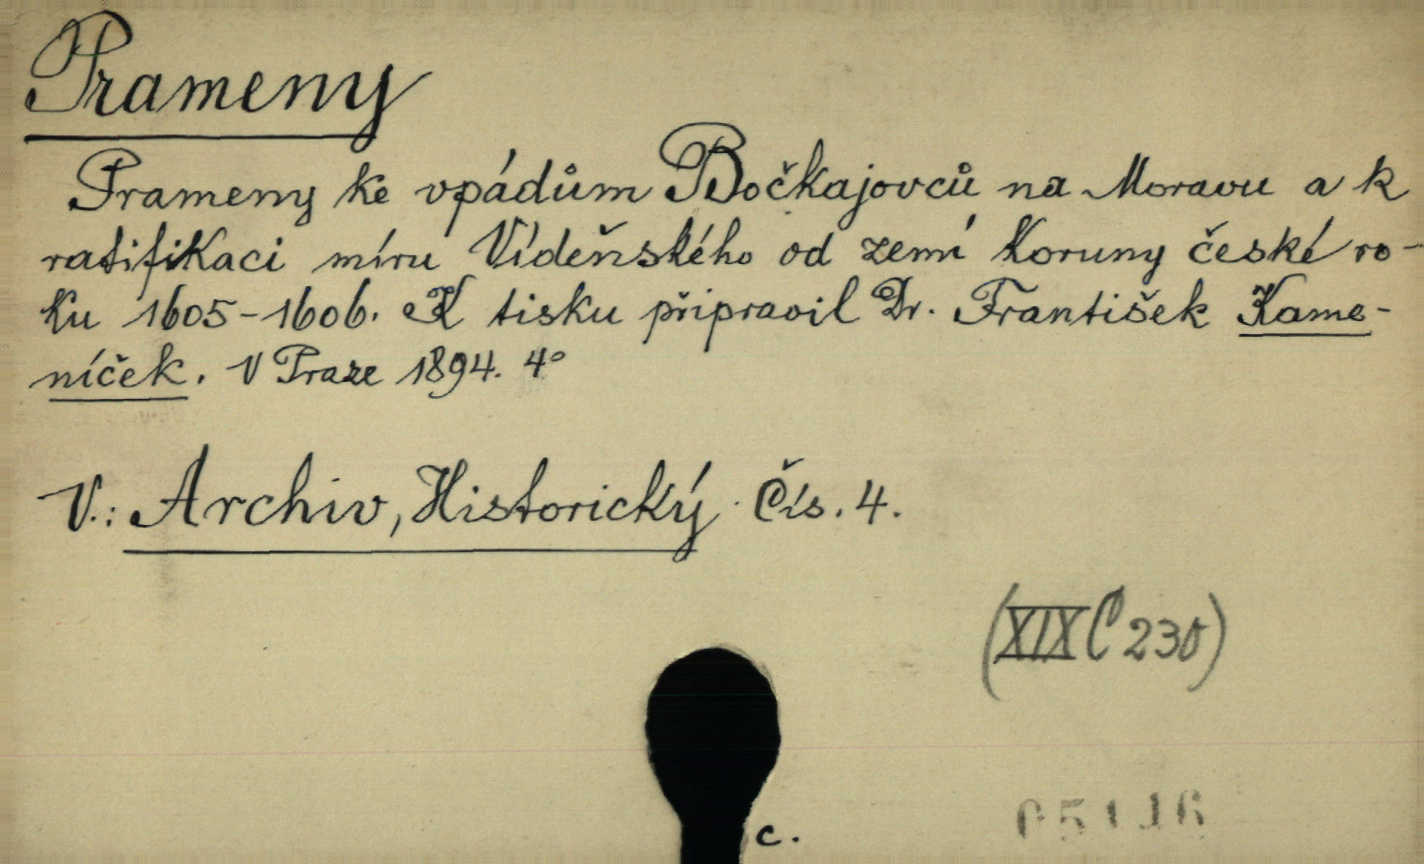 Prameny
Prameny ke vpádům Bočkajovců na Moravu a k
ratifikaci míru Vídeňského od zemí Koruny české ro-
ku 1605-1606. K tisku připravil Dr. František Kame-
níček. V Praze 1894. 4°
V.: Archiv, Historický. Čís. 4.
(XIX C 230)
c.